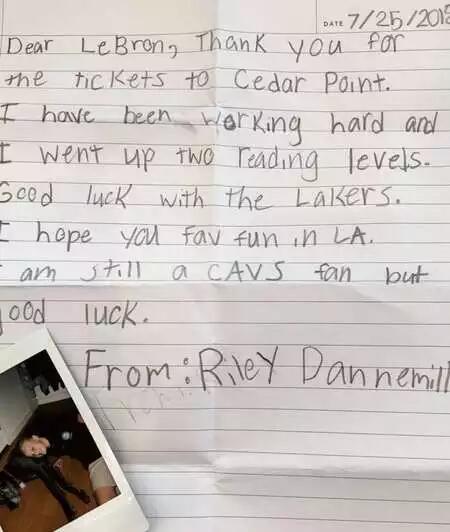 DATE 7/25/2018
Dear LeBron, Thank you for
the tickets to Cedar Point.
I have been working hard and
I went up two reading levels.
Good luck with the Lakers.
I hope you fav fun in LA.
I am still a CAVS fan but
good luck.
From: Riley Dannemill